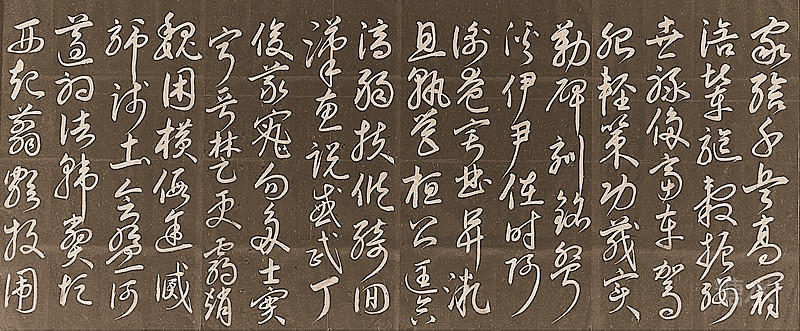 家給千兵高冠
陪輦驅轂振纓
世祿侈富車駕
肥輕策功茂實
勒碑刻銘磻
溪伊尹佐時阿
衡奄宅曲阜微
旦孰營桓公匡合
濟弱扶傾綺回
漢惠說感武丁
俊乂密勿多士寔
寧晉楚更霸趙
魏困橫假途滅
虢踐土會盟何
遵約法韓弊煩
刑起翦頗牧用